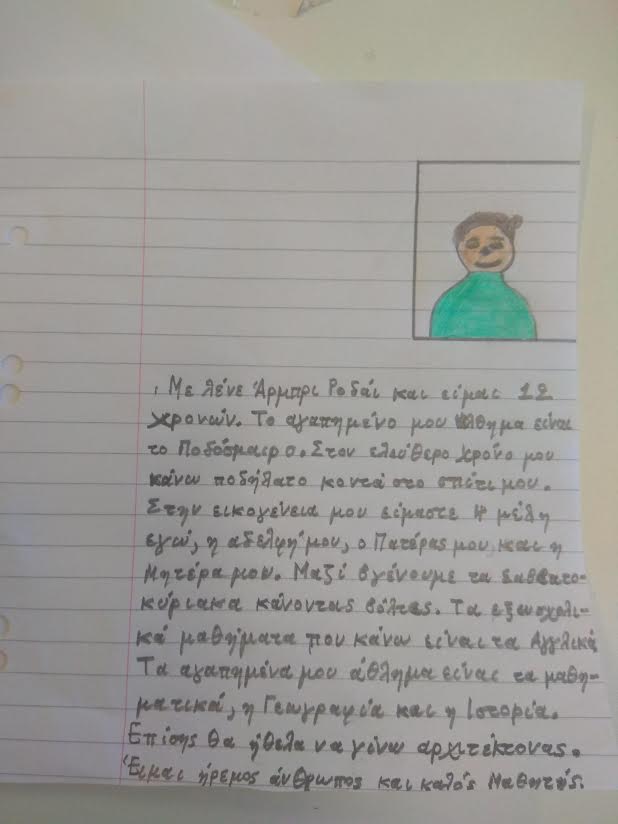 Με λένε Άρμπρι Ροδάι και είμαι 12
χρονών. Το αγαπημένο μου άθλημα είναι
το Ποδόσφαιρο. Στον ελεύθερο χρόνο μου
κάνω ποδήλατο κοντά στο σπίτι μου.
Στην εικογένεια μου είμαστε 4 μέλη
εγώ, η αδελφή μου, ο Πατέρας μου και η
Μητέρα μου. Μαζί βγένουμε τα σαββατο-
κύριακα κάνοντας βόλτες. Τα εξωσχολι-
κά μαθήματα που κάνω είναι τα Αγγλικά
Τα αγαπημένα μου άθλημα είναι τα μαθη-
ματικά, η Γεωγραφία και η Ιστορία.
Επίσης θα ήθελα να γίνω αρχιτέκτονας.
Είμαι ήρεμος άνθρωπος και καλός Μαθητής.